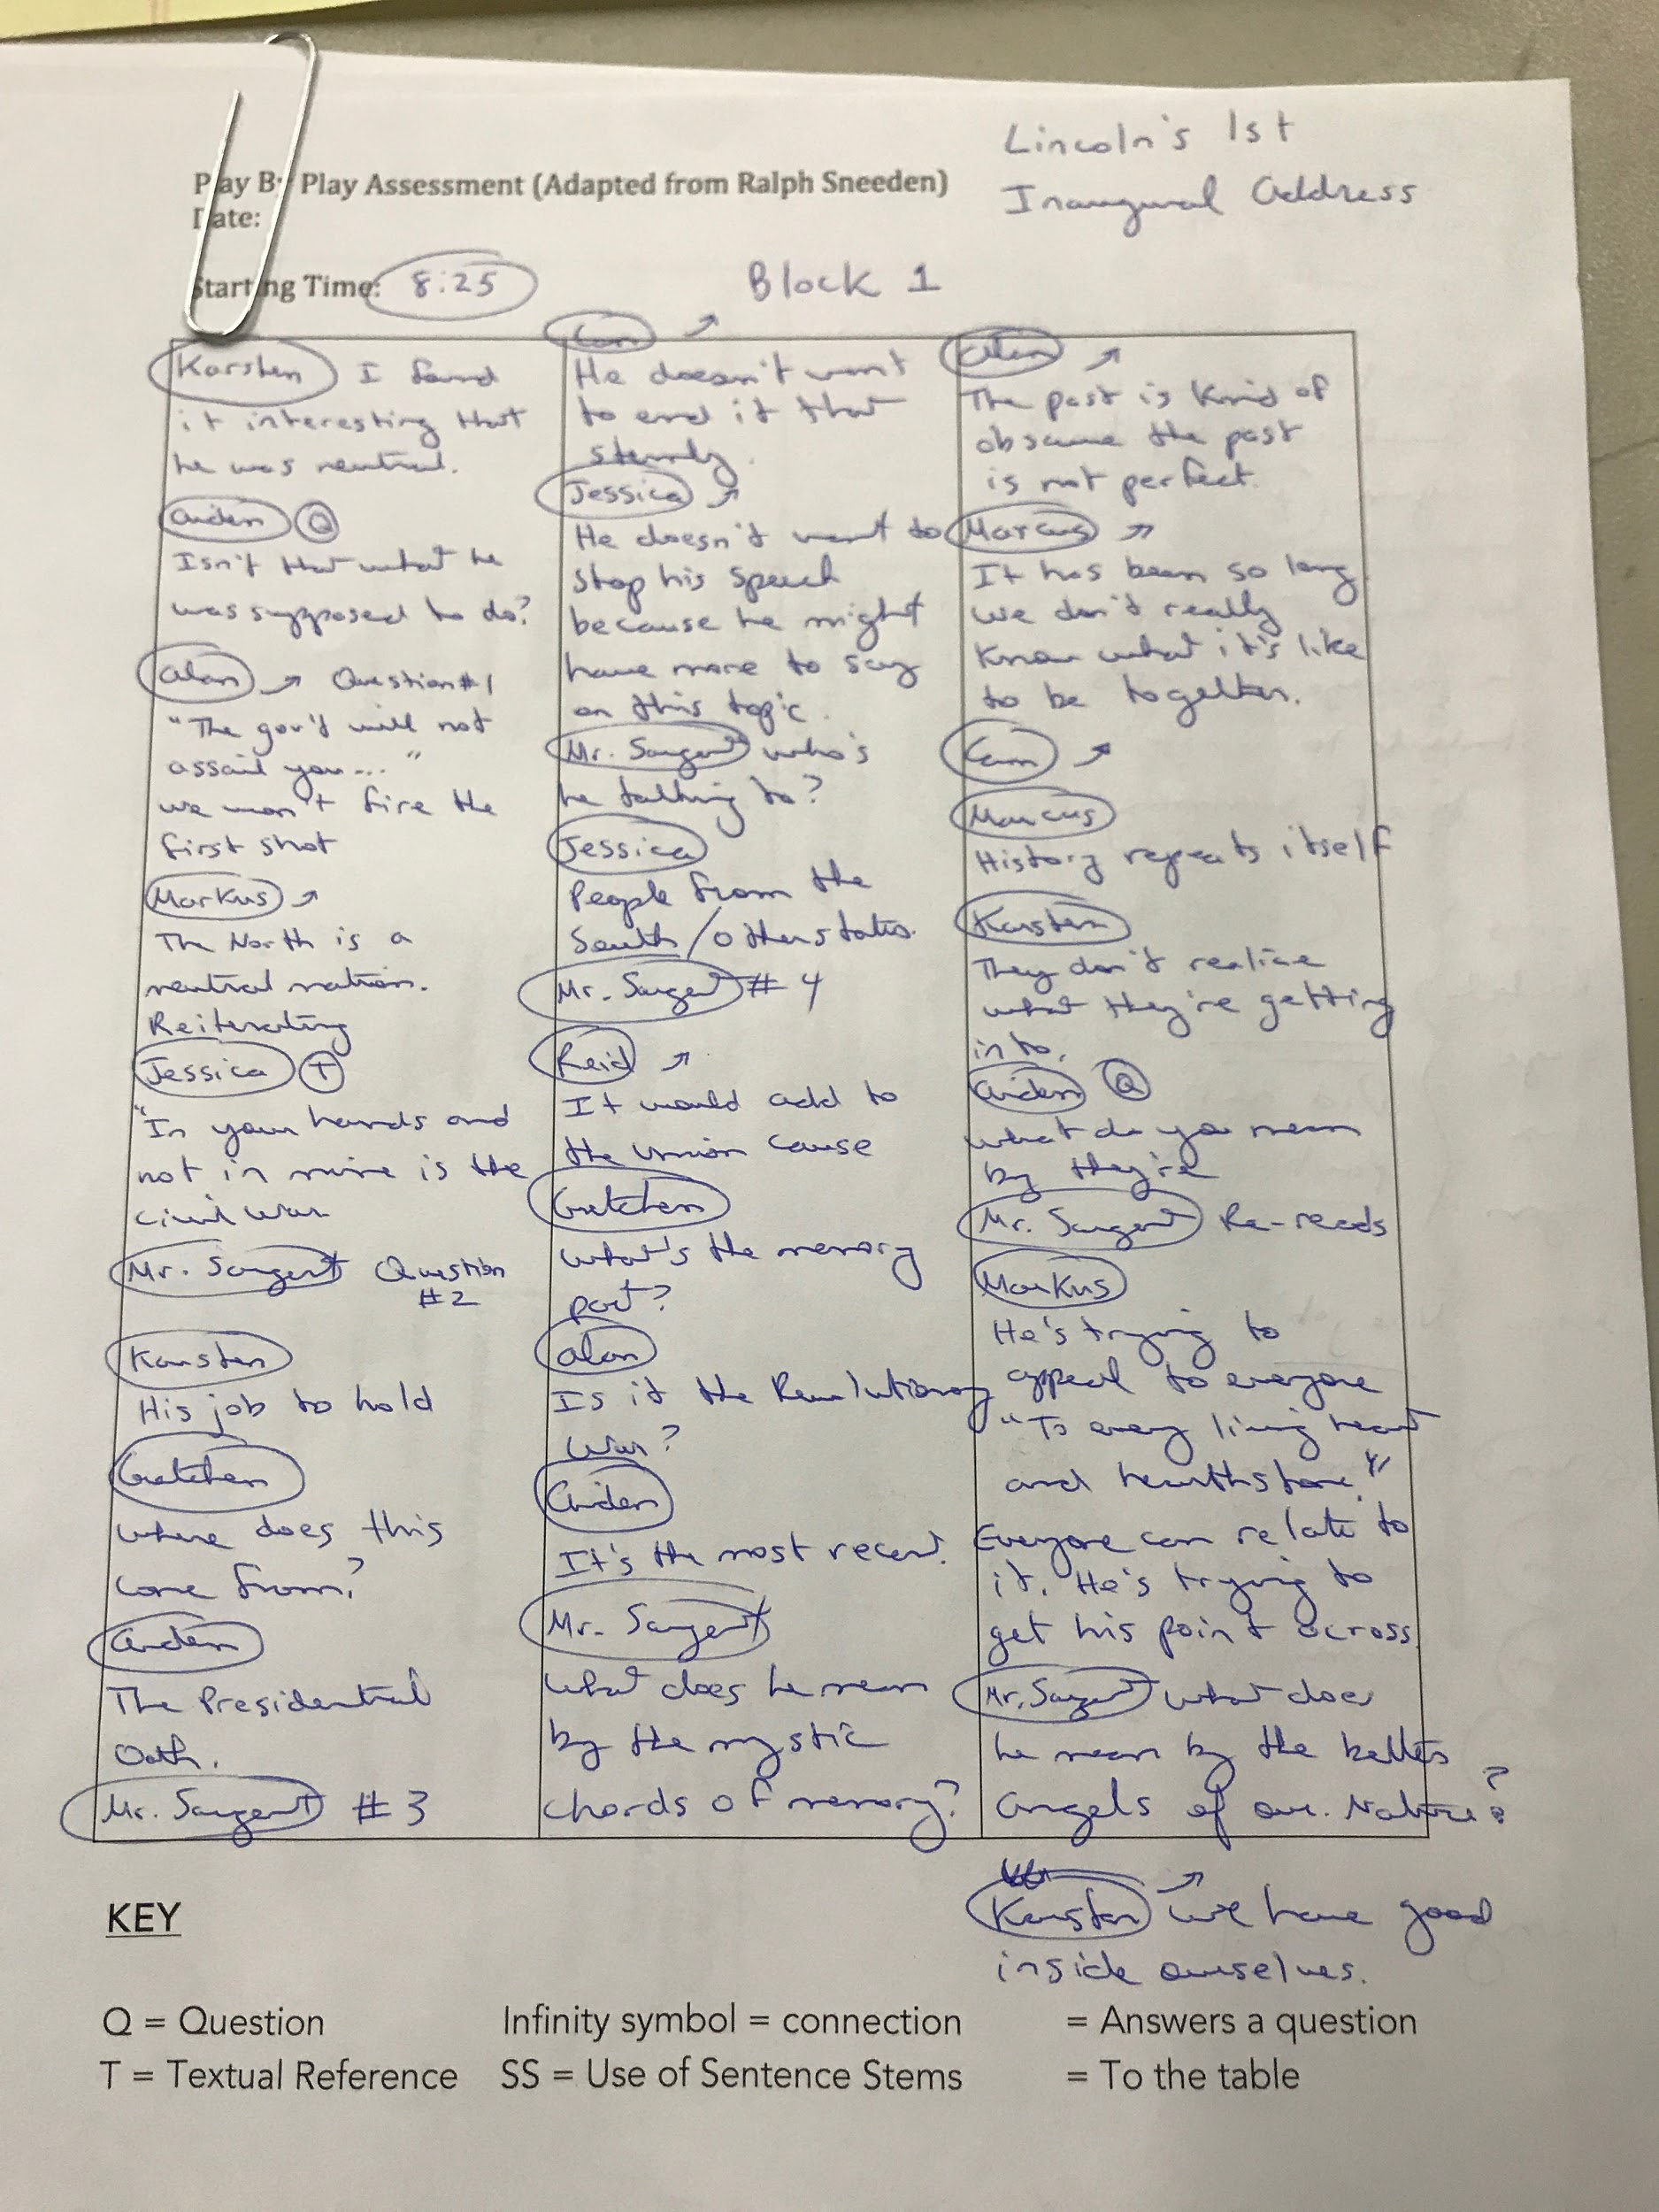 Lincoln's 1st
Inaugural Address
Play By Play Assessment (Adapted from Ralph Sneeden)
Date:
Starting Time: 8:25
Block 1
Karsten I found
it interesting that
he was neutral.
Aiden Q
Isn't that what he
was supposed to do?
Alan ↗ Question #1
"The gov't will not
assail you..."
we won't fire the
first shot
Markus ↗
The North is a
neutral nation.
Reiterating
Jessica T
"In your hands and
not in mine is the
civil war
Mr. Sargent Question
#2
Karsten
His job to hold
Gretchen
where does this
come from?
Aiden
The Presidential
Oath.
Mr. Sargent #3
Cam ↗
He doesn't want
to end it that
sternly.
Jessica ↗
He doesn't want to
stop his speech
because he might
have more to say
on this topic.
Mr. Sargent who's
he talking to?
Jessica
People from the
South/other states.
Mr. Sargent #4
Reid ↗
It would add to
the union cause
Gretchen
what's the memory
part?
Alan
Is it the Revolutionary
War?
Aiden
It's the most recent.
Mr. Sargent
what does he mean
by the mystic
chords of memory?
Alan ↗
The past is kind of
obscure the past
is not perfect.
Marcus ↗
It has been so long
we don't really
know what it's like
to be together.
Cam ↗
Marcus
History repeats itself
Karsten
They don't realize
what they're getting
into.
Aiden Q
what do you mean
by they're
Mr. Sargent Re-reads
Markus
He's trying to
appeal to everyone
"To every living heart
and hearthstone."
Everyone can relate to
it. He's trying to
get his point across.
Mr. Sargent what does
he mean by the betters
angels of our. Nature?
Karsten ↗ we have good
inside ourselves.
KEY
Q = Question Infinity symbol = connection = Answers a question
T = Textual Reference SS = Use of Sentence Stems = To the table